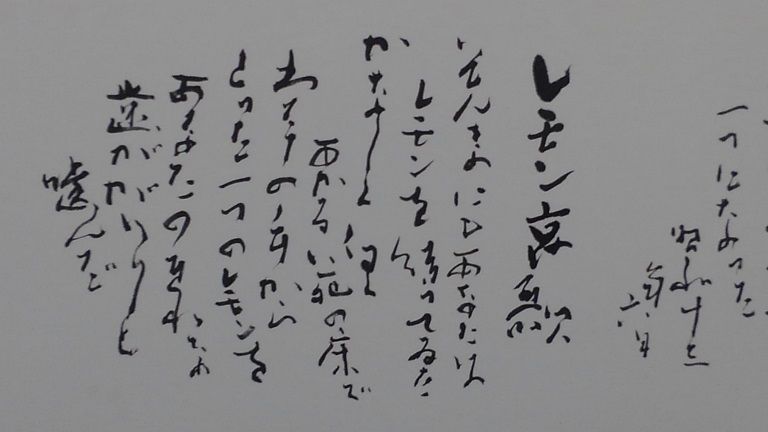 一つになつた
昭和十三
レモン哀歌
そんなにもあなたは
レモンを待つてゐた
かなしく白く
あかるい死の床で
わたしの手から
とつた一つのレモンを
あなたのきれいな
歯ががりりと
噛んだ